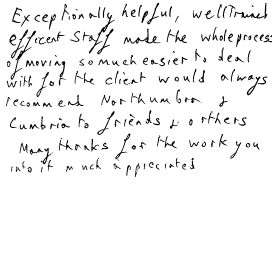 Exceptionally helpful, well Trained
efficent Staff made the whole process
of moving so much easier to deal
with for the client would always
recommend Northumbria &
Cumbria to friends & others
Many thanks for the work you
into it much appreciated